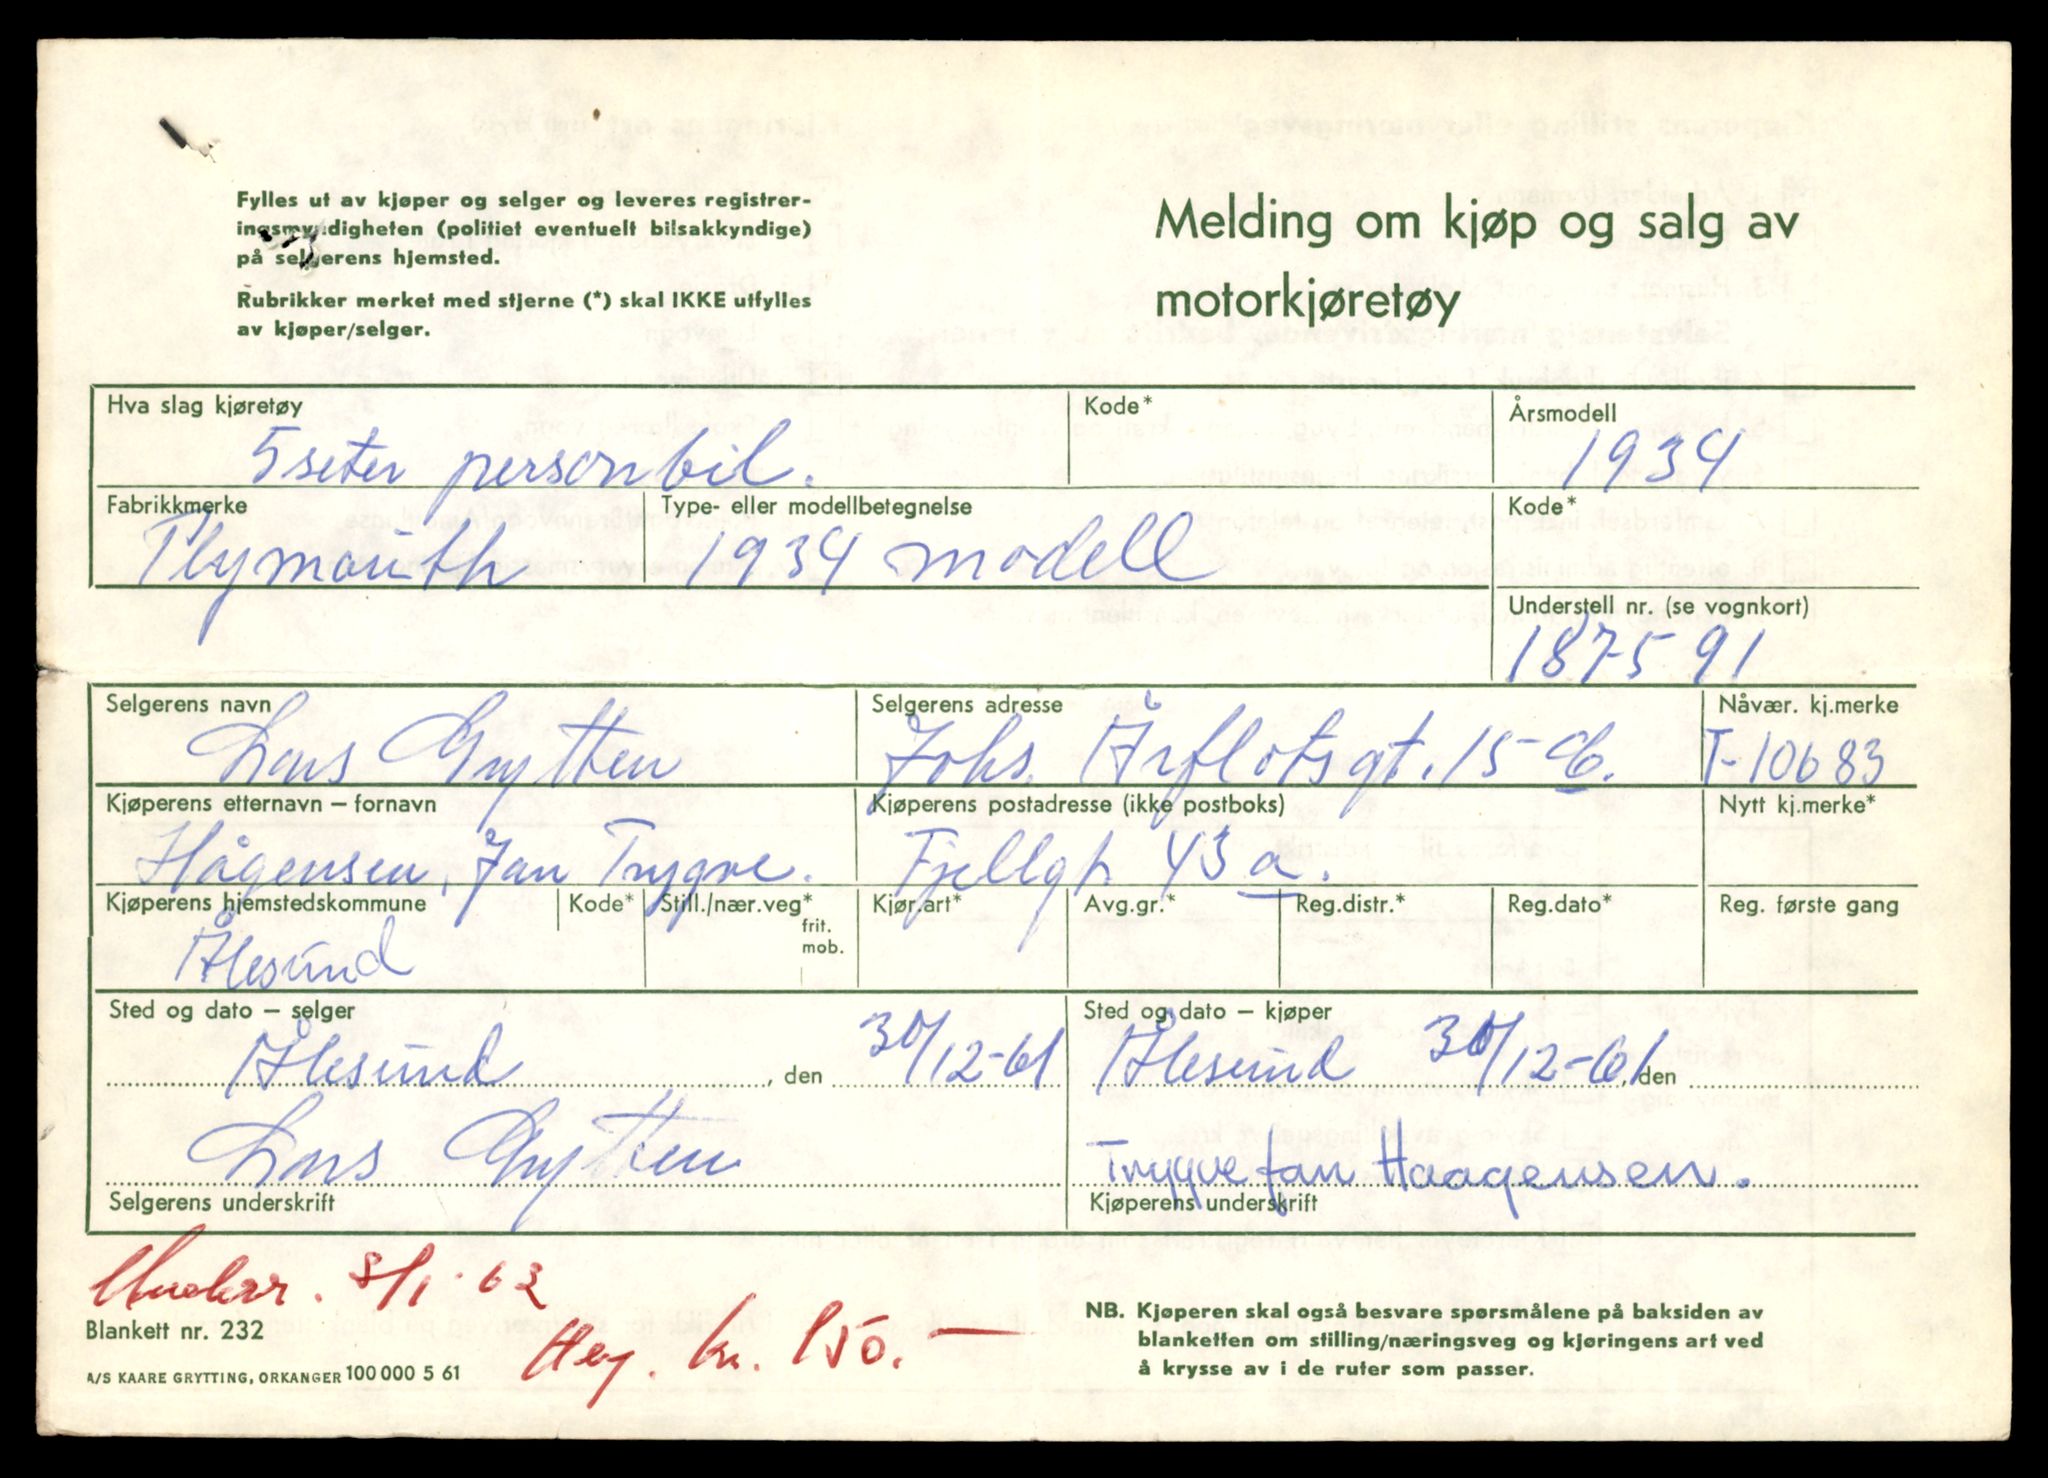 Fylles ut av kjøper og selger og leveres registrer-
ingsmyndigheten (politiet eventuelt bilsakkyndige)
på selgerens hjemsted.
Rubrikker merket med stjerne (*) skal IKKE utfylles
av kjøper/selger.
Melding om kjøp og salg av
motorkjøretøy
Hva slag kjøretøy
Kode*
Årsmodell
5 seter personbil.
1934
Fabrikkmerke
Type- eller modellbetegnelse
Kode*
Plymouth
1934 modell
Understell nr. (se vognkort)
187591
Selgerens navn
Selgerens adresse
Nåvær. kj.merke
Lars Grytten
Johs. Aarflotsgt. 15-b.
T-10683
Kjøperens etternavn – fornavn
Kjøperens postadresse (ikke postboks)
Nytt kj.merke*
Hågensen, Jan Trygve.
Fjellgt. 43 a.
Kjøperens hjemstedskommune
Kode*
Still./nær.veg*
frit.
mob.
Kjør.art*
Avg.gr.*
Reg.distr.*
Reg.dato*
Reg. første gang
Ålesund
Sted og dato – selger
Sted og dato – kjøper
Ålesund, den 30/12-61
Ålesund 30/12-61, den
Lars Grytten
Trygve Jan Haagensen.
Selgerens underskrift
Kjøperens underskrift
8/1-62
Blankett nr. 232
kr. 150.-
A/S KAARE GRYTTING, ORKANGER 100 000 5 61
NB. Kjøperen skal også besvare spørsmålene på baksiden av
blanketten om stilling/næringsveg og kjøringens art ved
å krysse av i de ruter som passer.